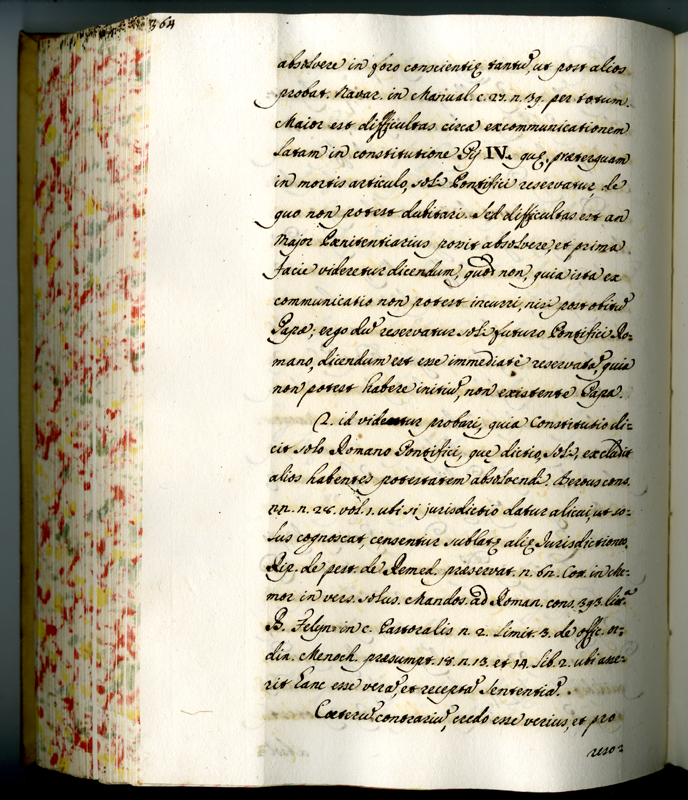 364
absolvere in foro conscientię tantũ, ut post alios
probat. Navar. in Manual. c. 27. n. 39. per totum.
Maior est difficultas circa excommunicationem
latam in constitutione Pij IV. quę, præterquam
in mortis articulo, soli Pontifici reservatur, de
quo non potest dubitari. Sed difficultas est an
Major Pænitentiarius possit absolvere, et prima
facie videretur dicendum, quod non, quia ista ex
communicatio non potest incurri, nisi post obitũ
Papæ; ergo dũ reservatur soli futuro Pontifici Ro=
mano, dicendum est esse immediatè reservatã, quia
non potest habere initiũ, non existente Papa.
2. id videtur probari, quia Constitutio di=
cit solo Romano Pontifici, que dictio, soli, excludit
alios habentes potestatem absolvendi. Berous cons.
n. 28. vol. 1. ubi si jurisdictio datur alicui, ut so=
lus cognoscat, censentur sublatę alię Jurisdictiones.
Rip. de pest. de Remed. præservat. n. 62. Cot. in Me=
mor in vers. solus. Mandos. ad Roman. cons. 393. litã
B. Felyn in c. Pastoralis n. 2. limit. 3. de offic. or=
din. Menoch. præsumpt. 18. n. 13. et 14. lib. 2. ubi asse=
rit hanc esse verã, et receptã sententiã.
Cæterũ contrariũ credo esse verius, et pro